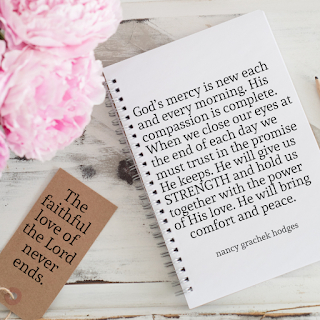 God's mercy is new each
and every morning. His
compassion is complete.
When we close our eyes at
the end of each day we
must trust in the promise
He keeps. He will give us
STRENGTH and hold us
together with the power
of His love. He will bring
comfort and peace.
nancy grachek hodges
The
faithful
love of
the Lord
never
ends.